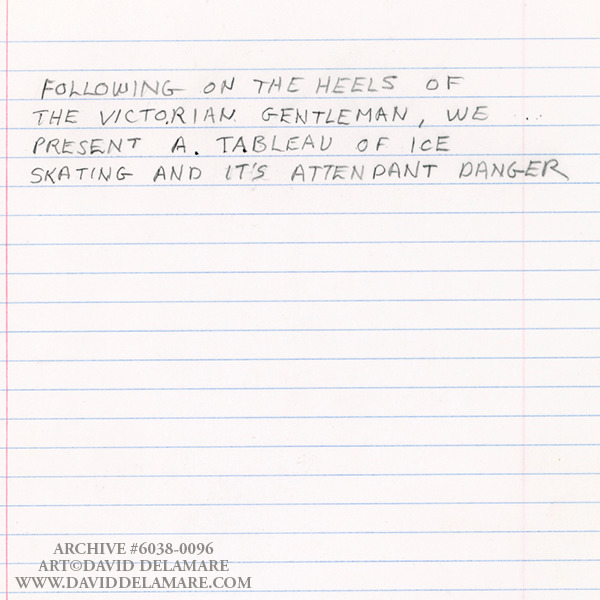 FOLLOWING ON THE HEELS OF
THE VICTORIAN GENTLEMAN, WE ...
PRESENT A. TABLEAU OF ICE
SKATING AND IT'S ATTENDANT DANGER
ARCHIVE #6038-0096
ART©DAVID DELAMARE
WWW.DAVIDDELAMARE.COM